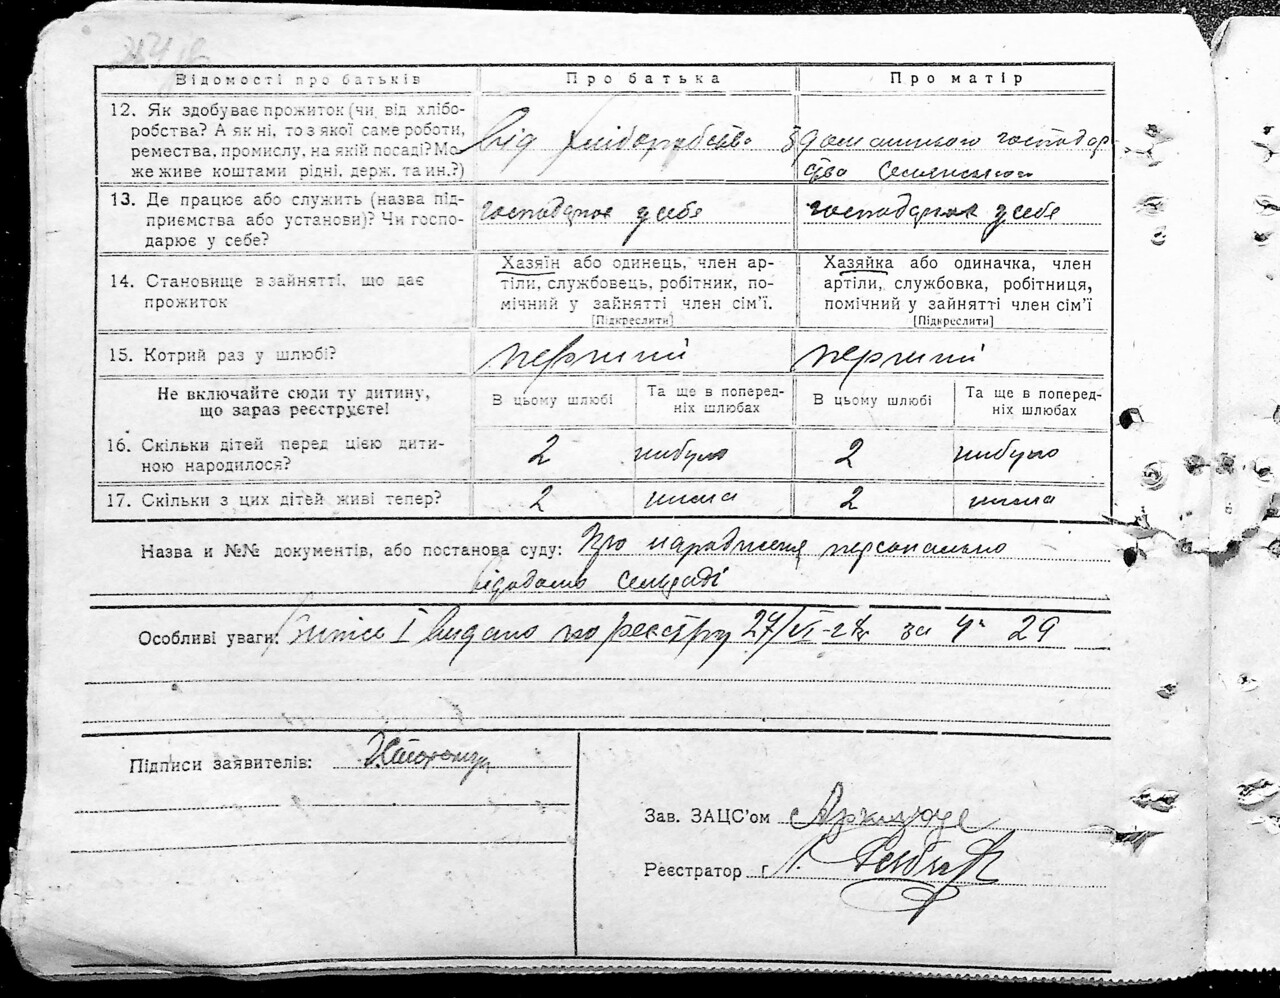 Відомості про батьків
Про батька
Про матір
12. Як здобуває прожиток (чи від хлібо-
робства? А як ні, то з якої саме роботи,
ремества, промислу, на якій посаді? Мо-
же живе коштами рідні, держ. та ин.?)
від хліборобства
з домашнього господар
ства селянського
13. Де працює або служить (назва під-
приємства або установи)? Чи госпо-
дарює у себе?
господарює у себе
господарює у себе
14. Становище в зайнятті, що дає
прожиток
Хазяїн або одинець, член ар-
тіли, службовець, робітник, по-
мічний у зайнятті член сім'ї.
[Підкреслити]
Хазяйка або одиначка, член
артіли, службовка, робітниця,
помічний у зайнятті член сім'ї
[Підкреслити]
15. Котрий раз у шлюбі?
перший
перший
Не включайте сюди ту дитину,
що зараз реєструєте!
В цьому шлюбі
Та ще в поперед-
ніх шлюбах
В цьому шлюбі
Та ще в поперед-
ніх шлюбах
16. Скільки дітей перед цією дити-
ною народилося?
2
небуло
2
небуло
17. Скільки з цих дітей живі тепер?
2
нема
2
нема
Назва и №№ документів, або постанова суду: Про народження персонально
відомо сельраді
Особливі уваги: I видано по реєстру 27/VI-28р за ч. 29
Підписи заявителів:
Зав. ЗАЦС'ом
Реєстратор